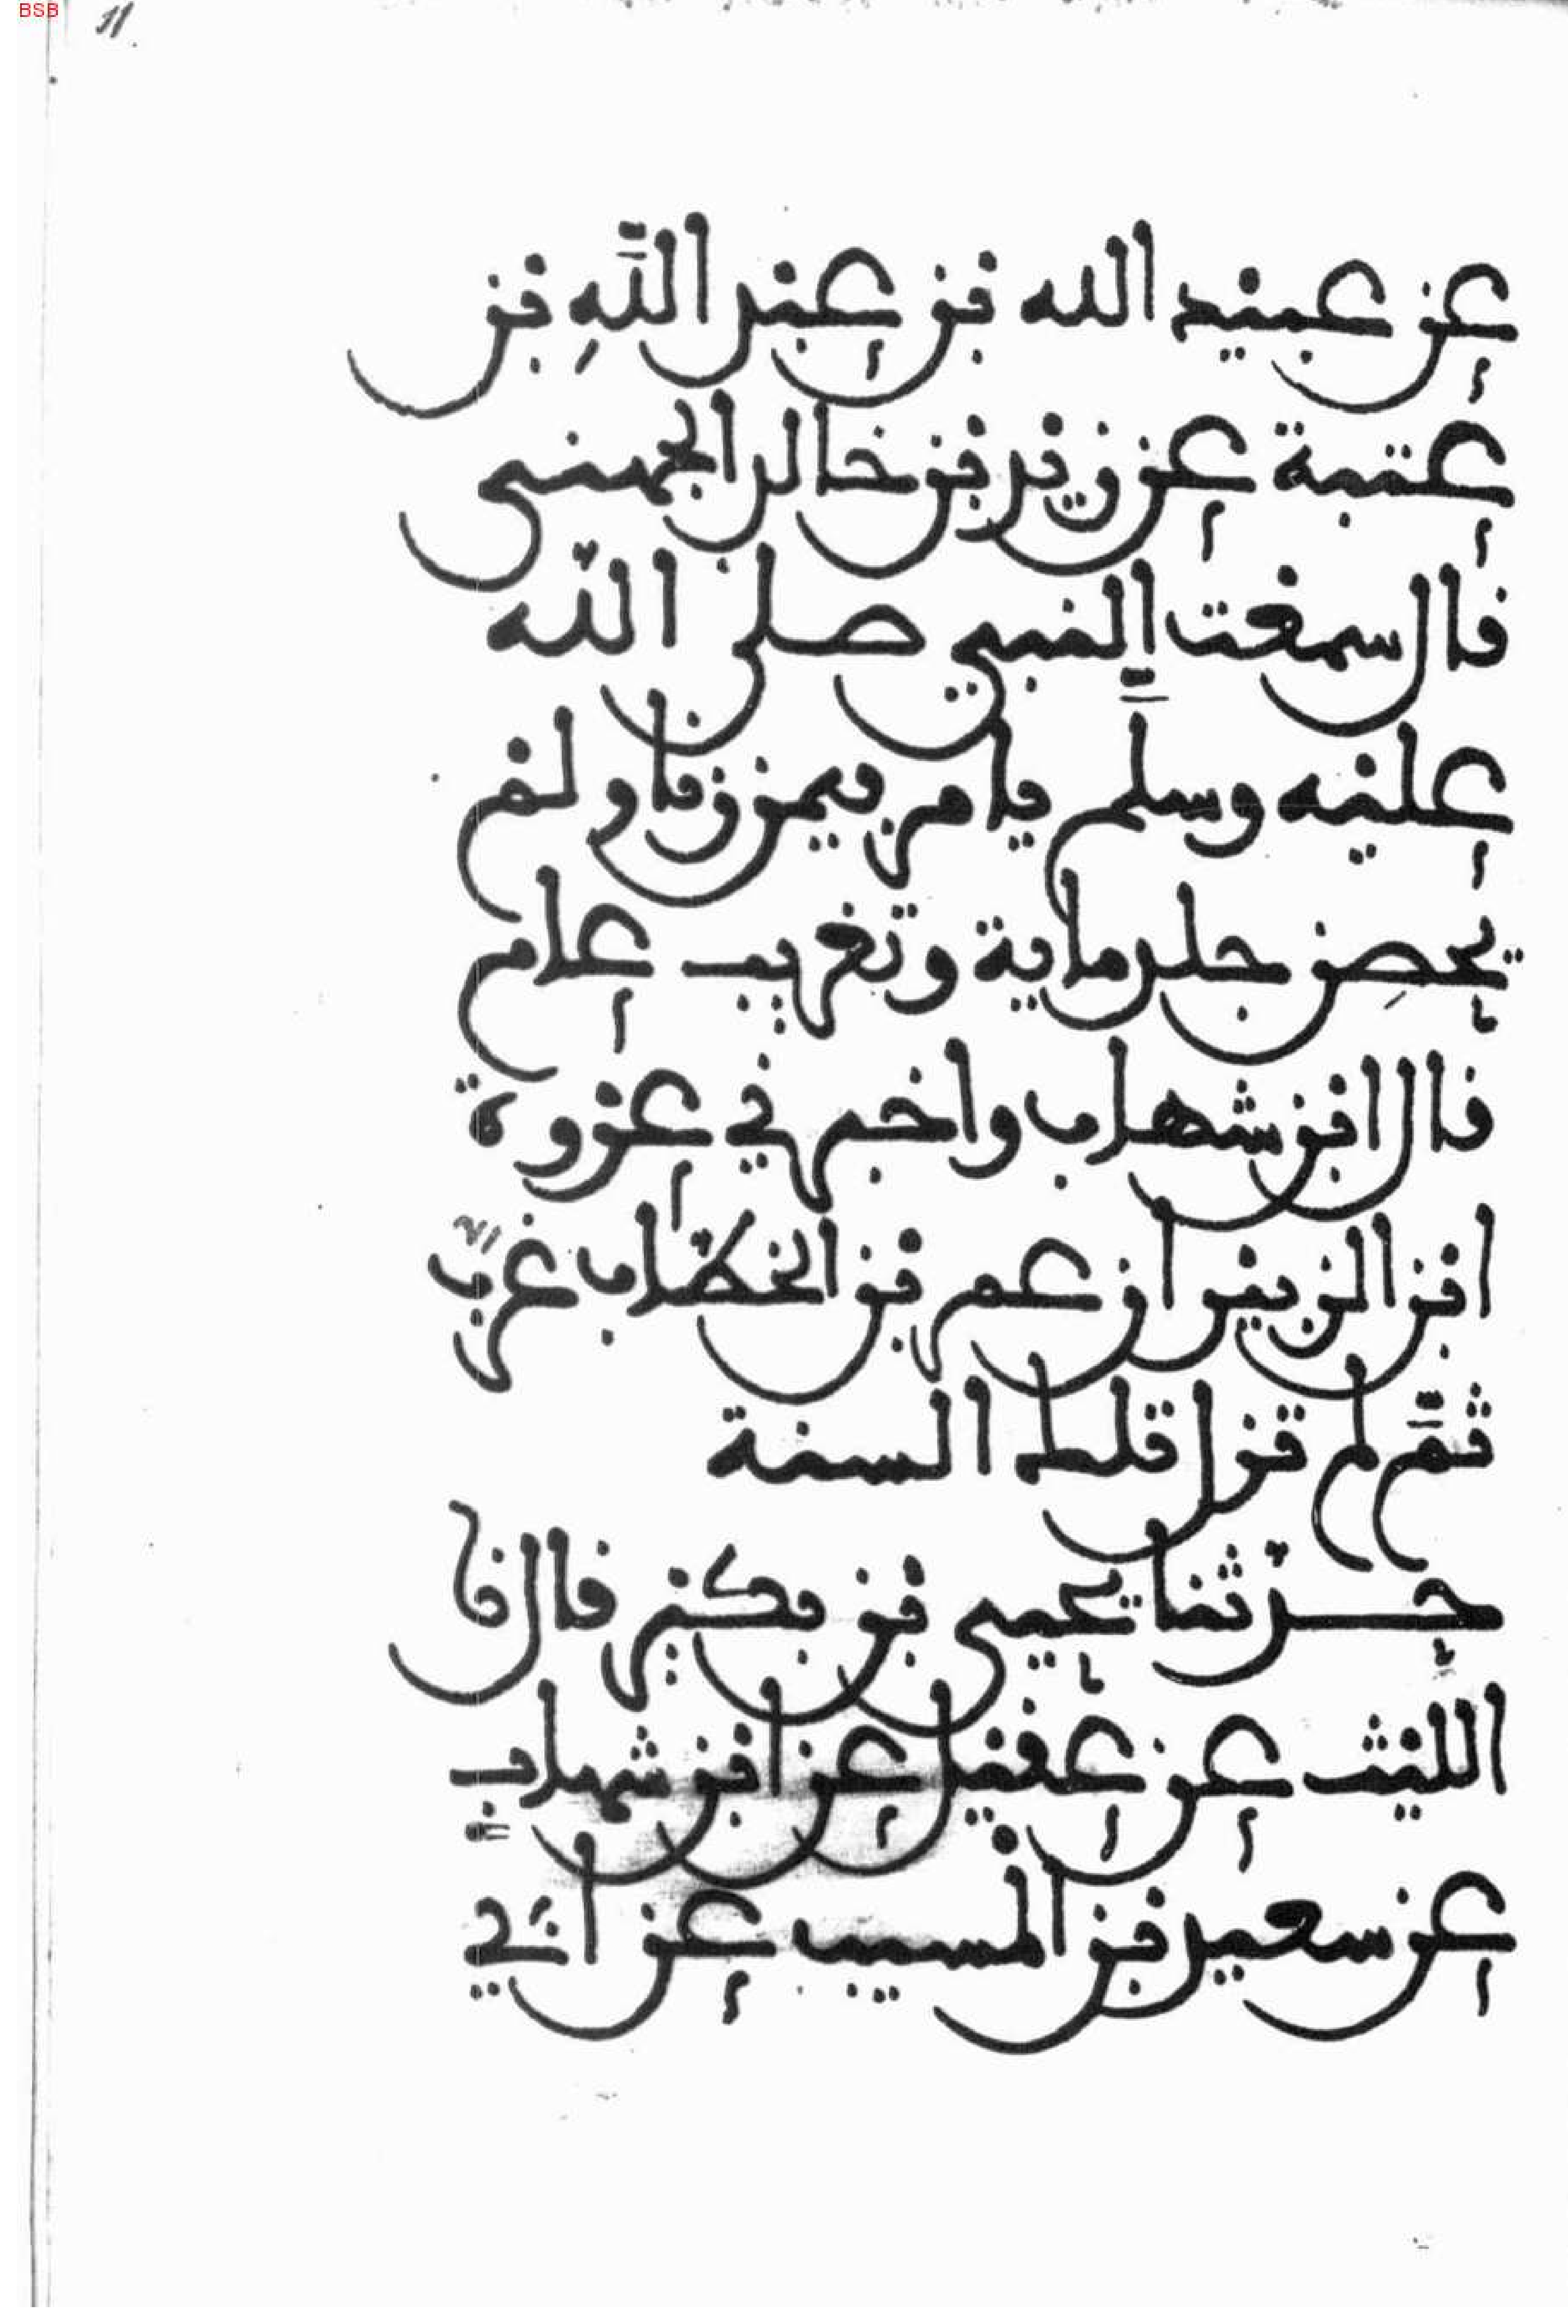 BSB
11
عن عبيد الله بن عبد اللَّهِ بن
عتبة عن زيد بن خالد الجهني
قال سمعت النبي صلى الله
عليه وسلم يامر فيمن زنا ولم
يحصِن جلد ماية وتغريب عام
قال ابن شهاب واخبرني عروة
ابن الزبير ان عمر بن الخطاب غرب
ثمَّ لم تزل تلط السنة
حدثنا يحيى بن بكير قال نا
الليث عن عقيل عن ابن شهاب
عن سعيد بن المسيب عن ابي